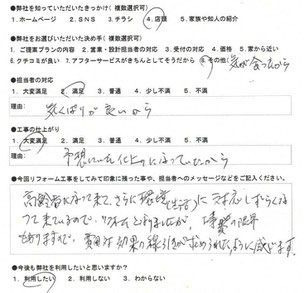 ●弊社を知っていただいたきっかけ(複数選択可)
1. ホームページ 2. SNS 3. チラシ 4. 店頭 5. 家族や知人の紹介
●弊社をお選びいただいた決め手(複数選択可)
1. ご提案プランの内容 2. 営業・設計担当者の対応 3. 受付の対応 4. 価格 5. 家から近い
6. クチコミが良い 7. アフターサービスがきちんとしてそうだから 8. その他( 気が合ったから
●担当者の対応
1. 大変満足 2. 満足 3. 普通 4. 少し不満 5. 不満
理由: 気くばりが良いから
●工事の仕上がり
1. 大変満足 2. 満足 3. 普通 4. 少し不満 5. 不満
理由: 予想にいい仕上りになっていたから
●今回リフォーム工事をしてみて印象に残った事や、担当者へのメッセージなどをご記入ください。
高齢者になって来て、さらに環境(生活)に対応しずらくな
って来ているので、リフォームとなりましたが、
もありますので、費用対効果の線引きが求められるように感じます。
●今後も弊社を利用したいと思いますか?
1. 利用したい 2. 利用しない 3. わからない